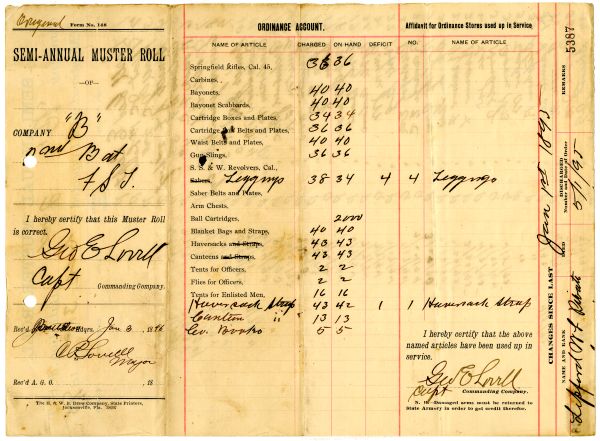 Original Form No. 148
SEMI-ANNUAL MUSTER ROLL
—OF—
COMPANY "B"
2nd Bat
F S T
I hereby certify that this Muster Roll
is correct.
Geo E Lovell
Capt
Commanding Company.
Rec'd Hdqrs. Jan 3, 1896
Major
Rec'd A. G. O. , 18
The H. & W. B. Drew Company, State Printers,
Jacksonville, Fla.
ORDINANCE ACCOUNT.
NAME OF ARTICLE CHARGED ON HAND DEFICIT
Springfield Rifles, Cal. 45, 36 36
Carbines,
Bayonets, 40 40
Bayonet Scabbards, 40 40
Cartridge Boxes and Plates, 34 34
Cartridge Belts and Plates, 36 36
Waist Belts and Plates, 40 40
Gun Slings, 36 36
S. & W. Revolvers, Cal.,
Sabers, Leggings 38 34 4
Saber Belts and Plates,
Arm Chests,
Ball Cartridges, 2000
Blanket Bags and Straps, 40 40
Haversacks and Straps, 43 43
Canteens and Straps, 43 43
Tents for Officers, 2 2
Flies for Officers, 2 2
Tents for Enlisted Men, 16 16
Haversack Strap 43 42 1
Canteen " 13 13
Co. Books 5 5
Affidavit for Ordinance Stores used up in Service
NO. NAME OF ARTICLE
4 Leggings
1 Haversack Strap
I hereby certify that the above
named articles have been used up in
service.
Geo E Lovell
Capt Commanding Company.
N. B.—Damaged arms must be returned to
State Armory in order to get credit therefor.
CHANGES SINCE LAST Jan 1st 1895
NAME AND RANK
DISCHARGED
Number and Date of Order
REMARKS
5387
Private
5/1/95